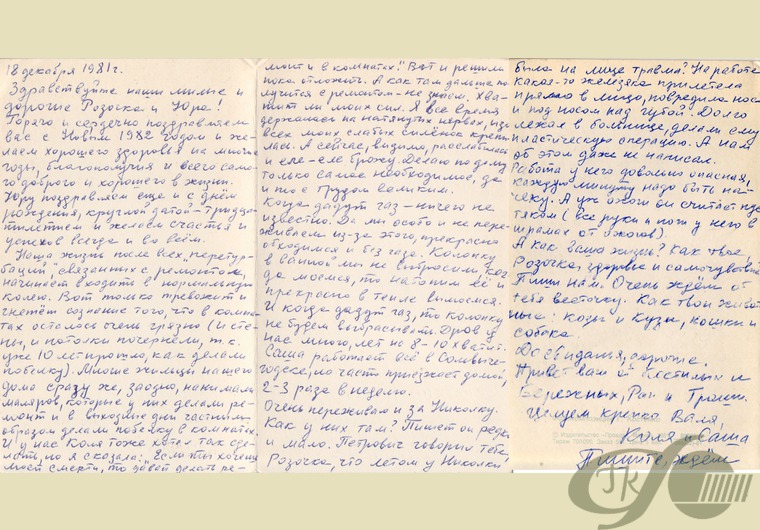 18 декабря 1981г.
Здравствуйте наши милые и
дорогие Розочка и Юра!
Горячо и сердечно поздравляем
вас с Новым 1982 годом и же-
лаем хорошего здоровья на многие
годы, благополучия и всего само-
го доброго и хорошего в жизни.
Юру поздравляем еще и с днём
рождения, круглой датой – тридца-
тилетием и желаем счастья и
успехов всегда и во всём.
Наша жизнь после всех перетур-
баций, связанных с ремонтом,
начинает входить в нормальную
колею. Вот только тревожит и
гнетёт сознание того, что в комна-
тах осталось очень грязно (и сте-
ны, и потолки почернели, т.к.
уже 10 лет прошло, как делали
побелку). Многие жильцы нашего
дома сразу же, заодно, нанимали
маляров, которые у них делали ре-
монт и в выходные дни частным
образом делали побелку в комнатах.
И у нас Коля тоже хотел так сде-
лать, но я сказала: „Если ты хочешь
моей смерти, то давай делать ре-
монт и в комнатах!" Вот и решили
пока отложить. А как там дальше по-
лучится с ремонтом – не знаю. Хва-
тит ли моих сил. Я всё время
держалась на натянутых нервах, изо
всех моих слабых силёнок крепи-
лась. А сейчас, видимо, расслабилась
и еле-еле брожу. Делаю по дому
только самое необходимое, да
и то с трудом великим.
Когда дадут газ – ничего не
известно. Да мы особо и не пере-
живаем из-за этого, прекрасно
обходимся и без газа. Колонку
в ванной мы не выбросили, ког-
да моемся, то натопим её и
прекрасно в тепле вымоемся.
И когда дадут газ, то колонку
не будем выбрасывать. Дров у
нас много, лет на 8-10 хватит.
Саша работает всё в Сольвыче-
годске, но часто приезжает домой,
2-3 раза в неделю.
Очень переживаю и за Николку.
Как у них там? Пишет он редко
и мало. Петрович говорил тебе,
Розочка, что летом у Николки
была на лице травма? На работе
какая-то железяка прилетела
прямо в лицо, повредила нос
и под носом над губой. Долго
лежал в больнице, делали ему
пластическую операцию. А нам
об этом даже не написал.
Работа у него довольно опасная,
каждую минуту надо быть на-
чеку. А уж ожоги он считает пус-
тяком (все руки и ноги у него в
шрамах от ожогов).
А как Ваша жизнь? Как твоё,
Розочка, здоровье и самочувствие?
Пиши нам. Очень ждём от
тебя весточку. Как твои живот-
ные: козы и Кузя, кошки и
собака
До свидания, дорогие.
Привет вам от Костылих и
Бережных, Раи и Гриши.
Целуем крепко Валя,
Коля и Саша
Пишите, ждём